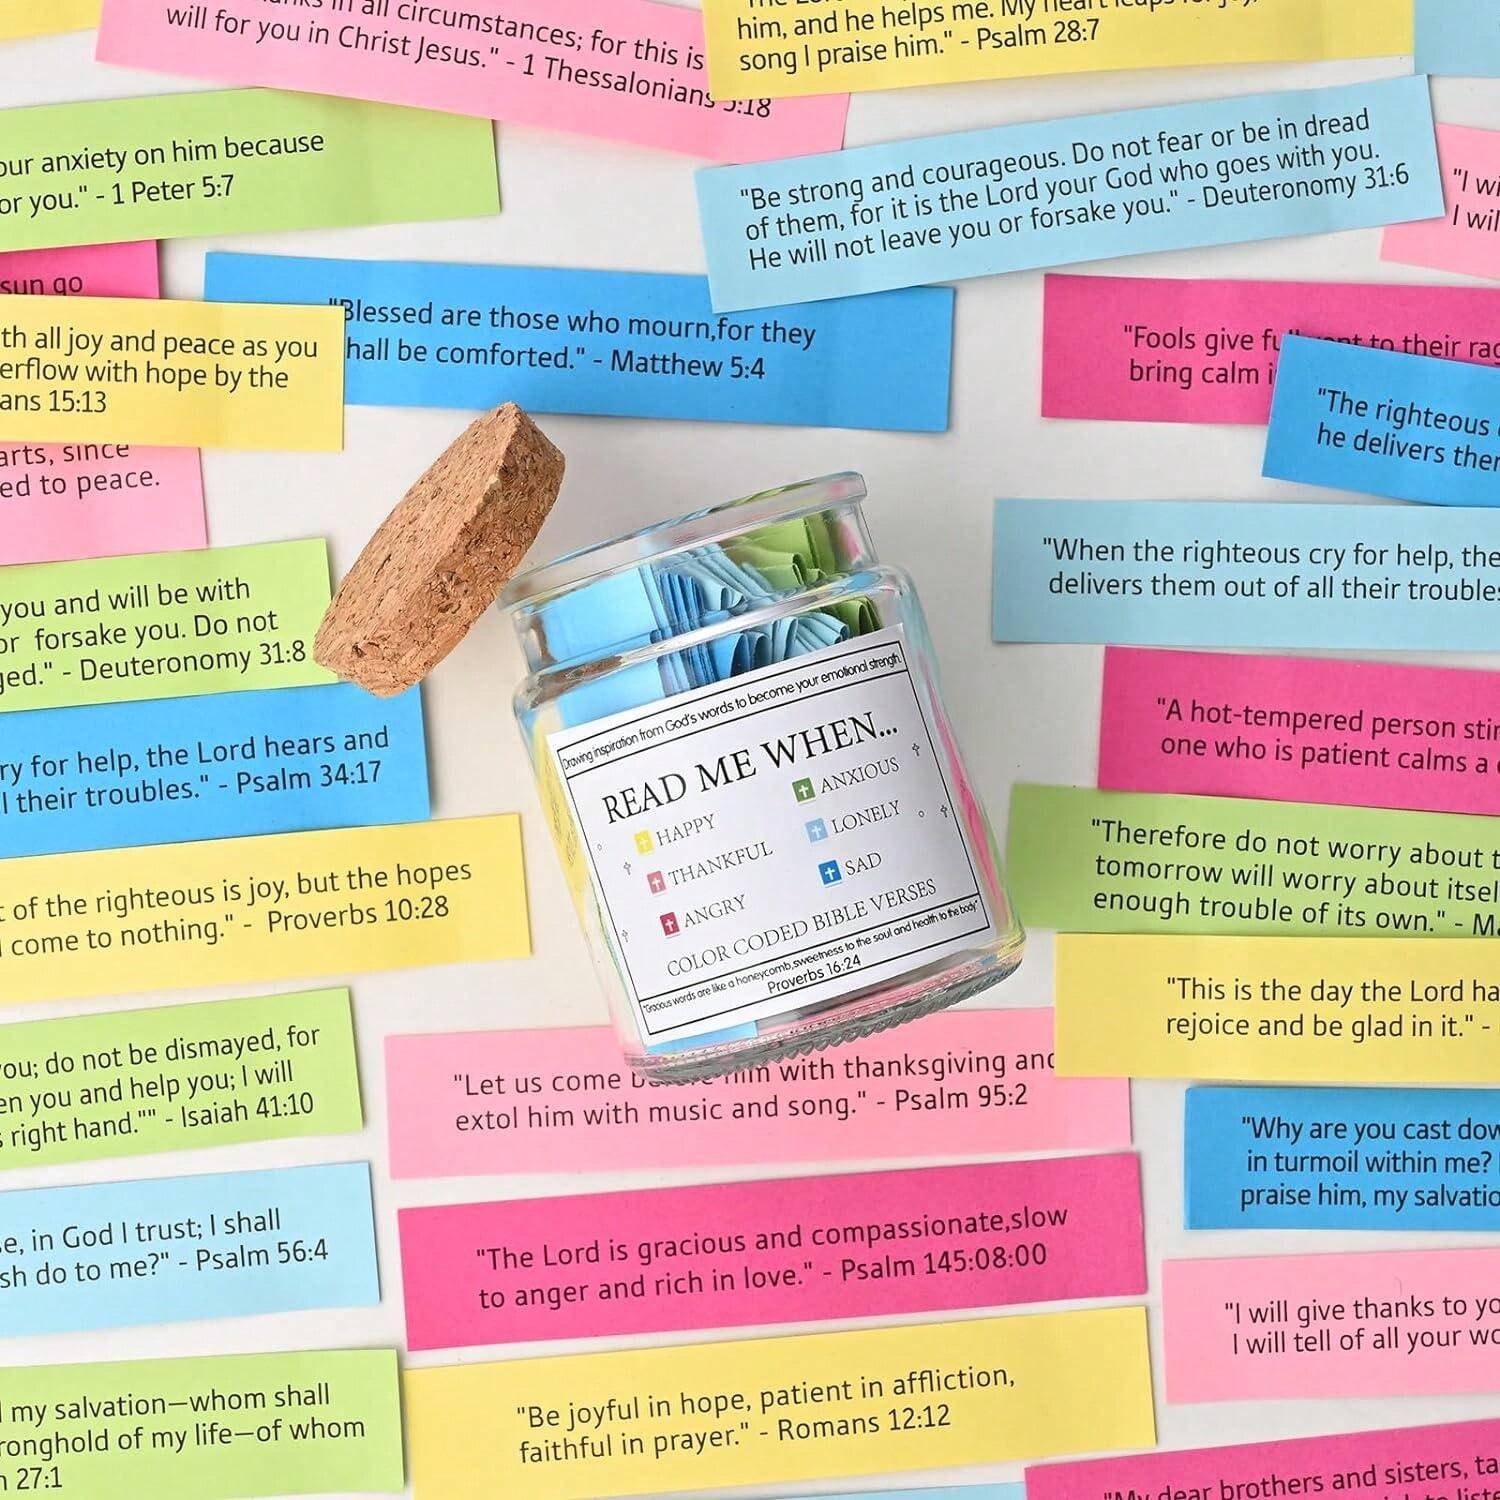 in all circumstances; for this is
will for you in Christ Jesus." - 1 Thessalonians 5:18
him, and he helps me. My heart leaps for joy,
song I praise him." - Psalm 28:7
our anxiety on him because
or you." - 1 Peter 5:7
"Be strong and courageous. Do not fear or be in dread
of them, for it is the Lord your God who goes with you.
He will not leave you or forsake you." - Deuteronomy 31:6
"I wi
I wil
sun go
th all joy and peace as you
erflow with hope by the
ans 15:13
"Blessed are those who mourn,for they
hall be comforted." - Matthew 5:4
"Fools give fu to their rag
bring calm i
"The righteous
he delivers ther
arts, since
ed to peace.
"When the righteous cry for help, the
delivers them out of all their troubles
you and will be with
or forsake you. Do not
ged." - Deuteronomy 31:8
ry for help, the Lord hears and
l their troubles." - Psalm 34:17
"A hot-tempered person stir
one who is patient calms a
Drawing inspiration from God's words to become your emotional strength.
READ ME WHEN...
HAPPY
THANKFUL
ANGRY
ANXIOUS
LONELY
SAD
COLOR CODED BIBLE VERSES
"Gracious words are like a honeycomb,sweetness to the soul and health to the body"
Proverbs 16:24
"Therefore do not worry about t
tomorrow will worry about itsel
enough trouble of its own." - Ma
t of the righteous is joy, but the hopes
come to nothing." - Proverbs 10:28
"This is the day the Lord ha
rejoice and be glad in it." -
ou; do not be dismayed, for
en you and help you; I will
s right hand."" - Isaiah 41:10
"Let us come before him with thanksgiving and
extol him with music and song." - Psalm 95:2
"Why are you cast dow
in turmoil within me?
praise him, my salvatio
e, in God I trust; I shall
sh do to me?" - Psalm 56:4
"The Lord is gracious and compassionate,slow
to anger and rich in love." - Psalm 145:08:00
"I will give thanks to yo
I will tell of all your wo
my salvation—whom shall
ronghold of my life—of whom
27:1
"Be joyful in hope, patient in affliction,
faithful in prayer." - Romans 12:12
"My dear brothers and sisters, ta